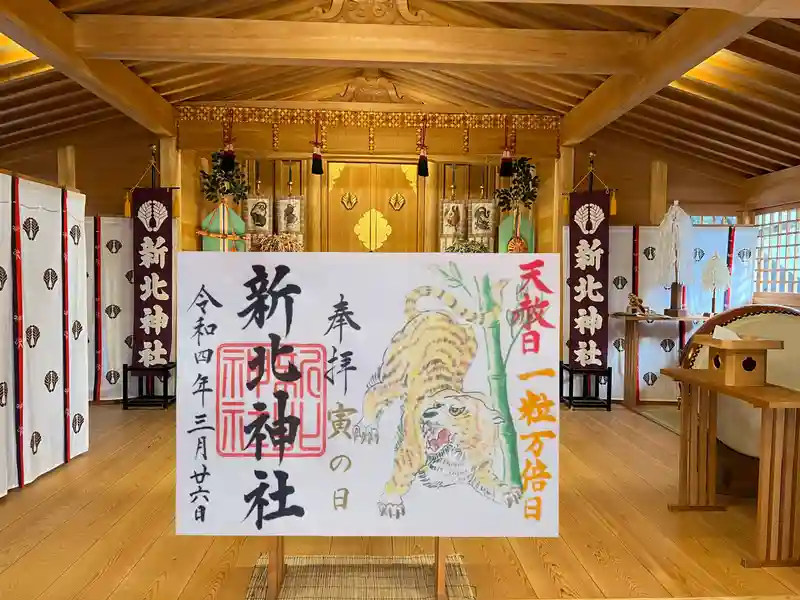 天赦日
一粒万倍日
奉拝
寅の日
新北神社
令和四年三月廿六日
新北神社
新北神社